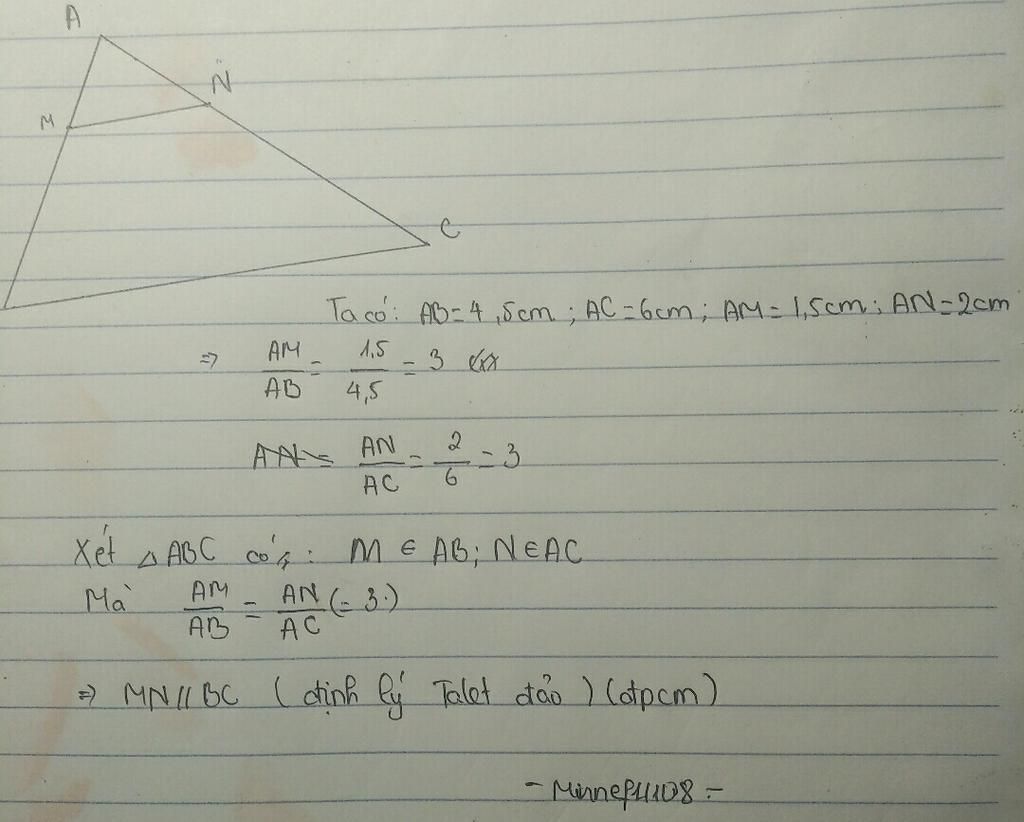 A
N
M
C
Ta có: AB=4,5cm; AC=6cm; AM=1,5cm; AN=2cm
=> AM/AB = 1,5/4,5 = 3
AN = AN/AC = 2/6 = 3
Xét △ABC có: M ∈ AB; N ∈ AC
Mà AM/AB = AN/AC (= 3.)
=> MN // BC (định lý Talet đảo) (đpcm)